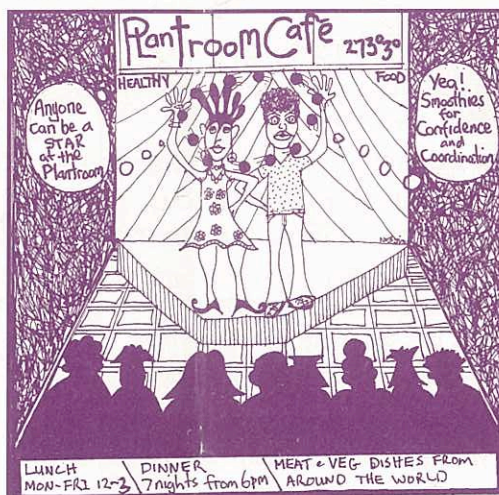 Plantroom Café 273030
HEALTHY FOOD
Anyone
can be a
STAR
at the
Plantroom
Yea!
Smoothies
for
Confidence
and
Coordination
LUNCH
MON-FRI 12-3
DINNER
7 nights from 6pm
MEAT & VEG DISHES FROM
AROUND THE WORLD